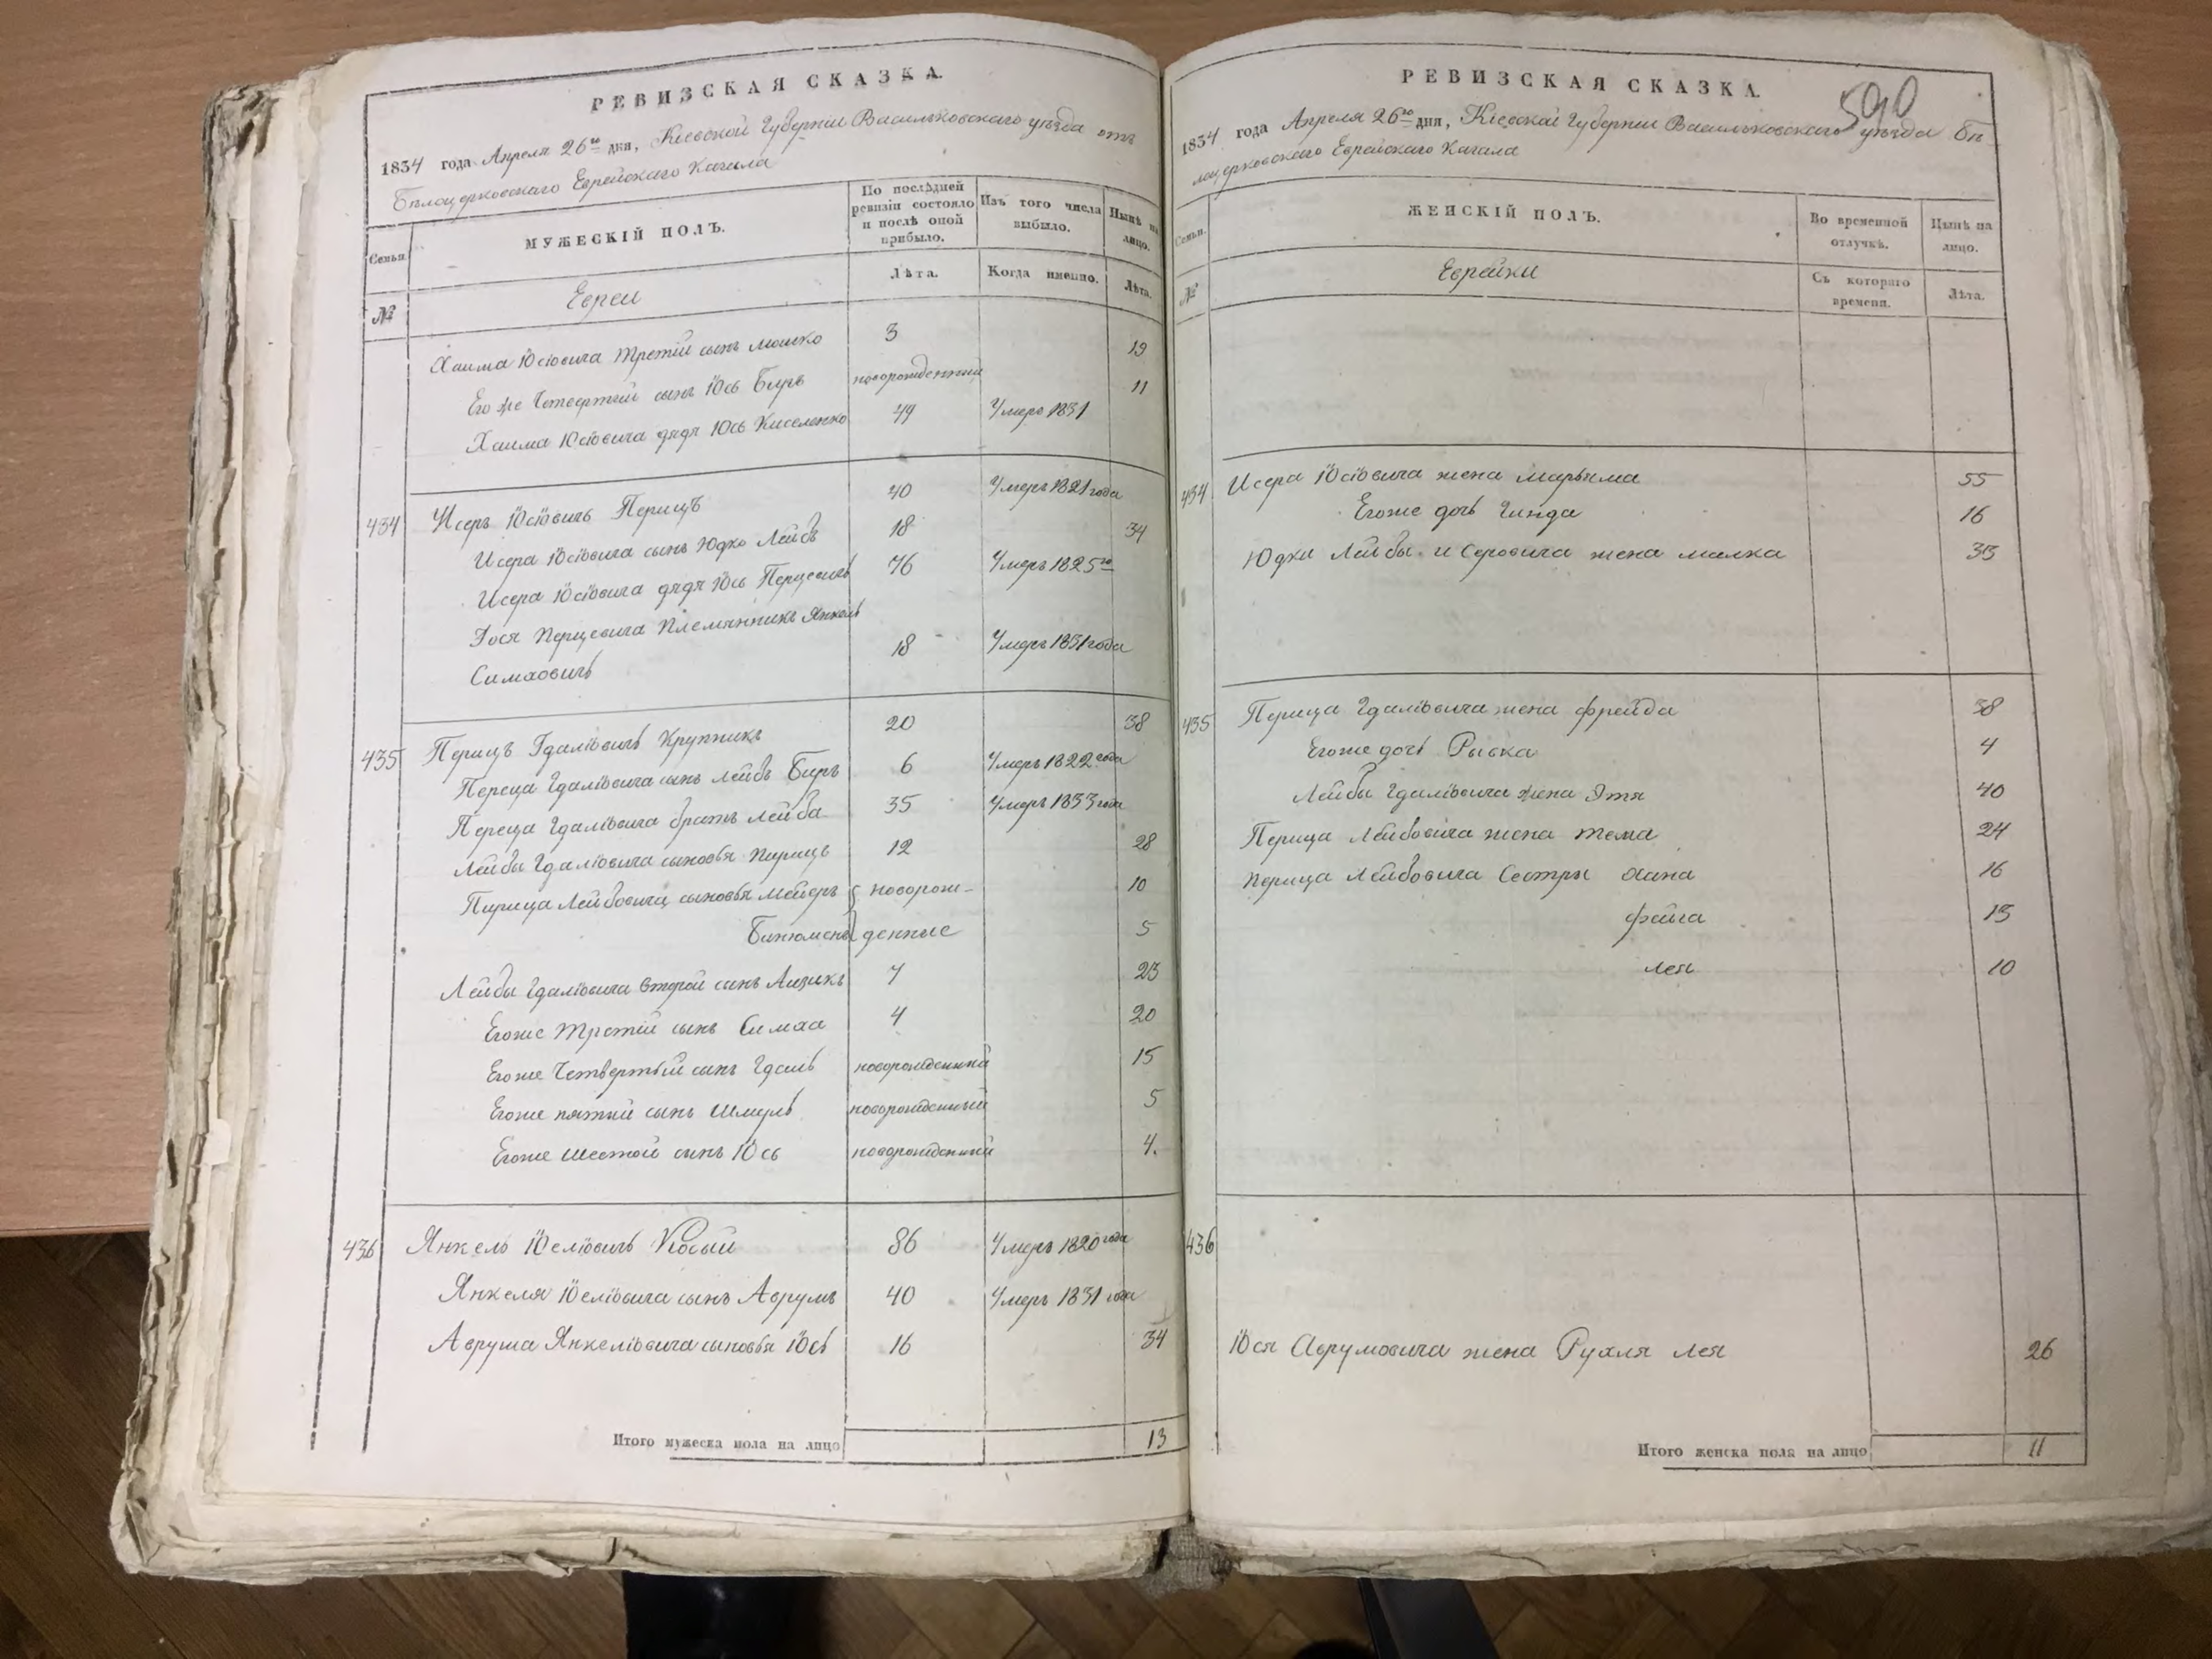 РЕВИЗСКАЯ СКАЗКА.
1834 года Апреля 26го дня, Кіевской Губерніи Васильковскаго уѣзда отъ
Бѣлоцерковскаго Еврейскаго Кагала
Семьи. МУЖЕСКІЙ ПОЛЪ. По послѣдней ревизіи состояло и послѣ оной прибыло. Изъ того числа выбыло. Нынѣ на лицо.
№ Евреи Лѣта. Когда именно. Лѣта.
Хаима Юсіовича третій сынъ Мошко 3 19
Его же Четвертый сынъ Юсь Беръ новорожденный 11
Хаима Юсіовича дядя Юсь Киселенко 49 Умеръ 1831
434 Исеръ Юсіовичъ Перицъ 40 Умеръ 1821 года
Исера Юсіовича сынъ Юдко Лейбъ 18 34
Исера Юсіовича дядя Юсь Перцевичъ 76 Умеръ 1825го
Юся Перцевича Племянникъ Янкель
Симховичъ 18 Умеръ 1831 года
435 Перицъ Гдаліовичъ Крупникъ 20 38
Переца Гдаліовича сынъ Лейбъ Беръ 6 Умеръ 1822 года
Переца Гдаліовича братъ Лейба 35 Умеръ 1833 года
Лейбы Гдаліовича сыновья Перицъ 12 28
Пирица Лейбовича сыновья Мейеръ } новорож- 10
Бинюменъ } денные 5
Лейбы Гдаліовича второй сынъ Аизикъ 7 23
Егоже Третій сынъ Симха 4 20
Егоже Четвертый сынъ Гдаль новорожденный 15
Егоже пятый сынъ Шмуль новорожденный 5
Егоже шестой сынъ Юсь новорожденный 4.
436 Янкель Юселіовичъ Косый 86 Умеръ 1820 года
Янкеля Юселіовича сынъ Аврумъ 40 Умеръ 1831 года
Аврума Янкеліовича сыновья Юсь 16 34
Итого мужеска пола на лицо 13
590
РЕВИЗСКАЯ СКАЗКА.
1834 года Апреля 26го дня, Кіевской Губерніи Васильковскаго уѣзда Бѣ-
лоцерковскаго Еврейскаго Кагала
Семьи. ЖЕНСКІЙ ПОЛЪ. Во временной отлучкѣ. Нынѣ на лицо.
№ Еврейки Съ котораго времени. Лѣта.
434 Исера Юсіовича жена Марьяма 55
Егоже дочь Гинда 16
Юдки Лейбы Исеровича жена Малка 33
435 Перица Гдаліовича жена Фрейда 38
Егоже дочь Рывка 4
Лейбы Гдаліовича жена Этя 40
Перица Лейбовича жена Тема 24
Перица Лейбовича Сестры Хана 16
Фейга 13
Лея 10
436
Юся Аврумовича жена Рухля Лея 26
Итого женска пола на лицо 11